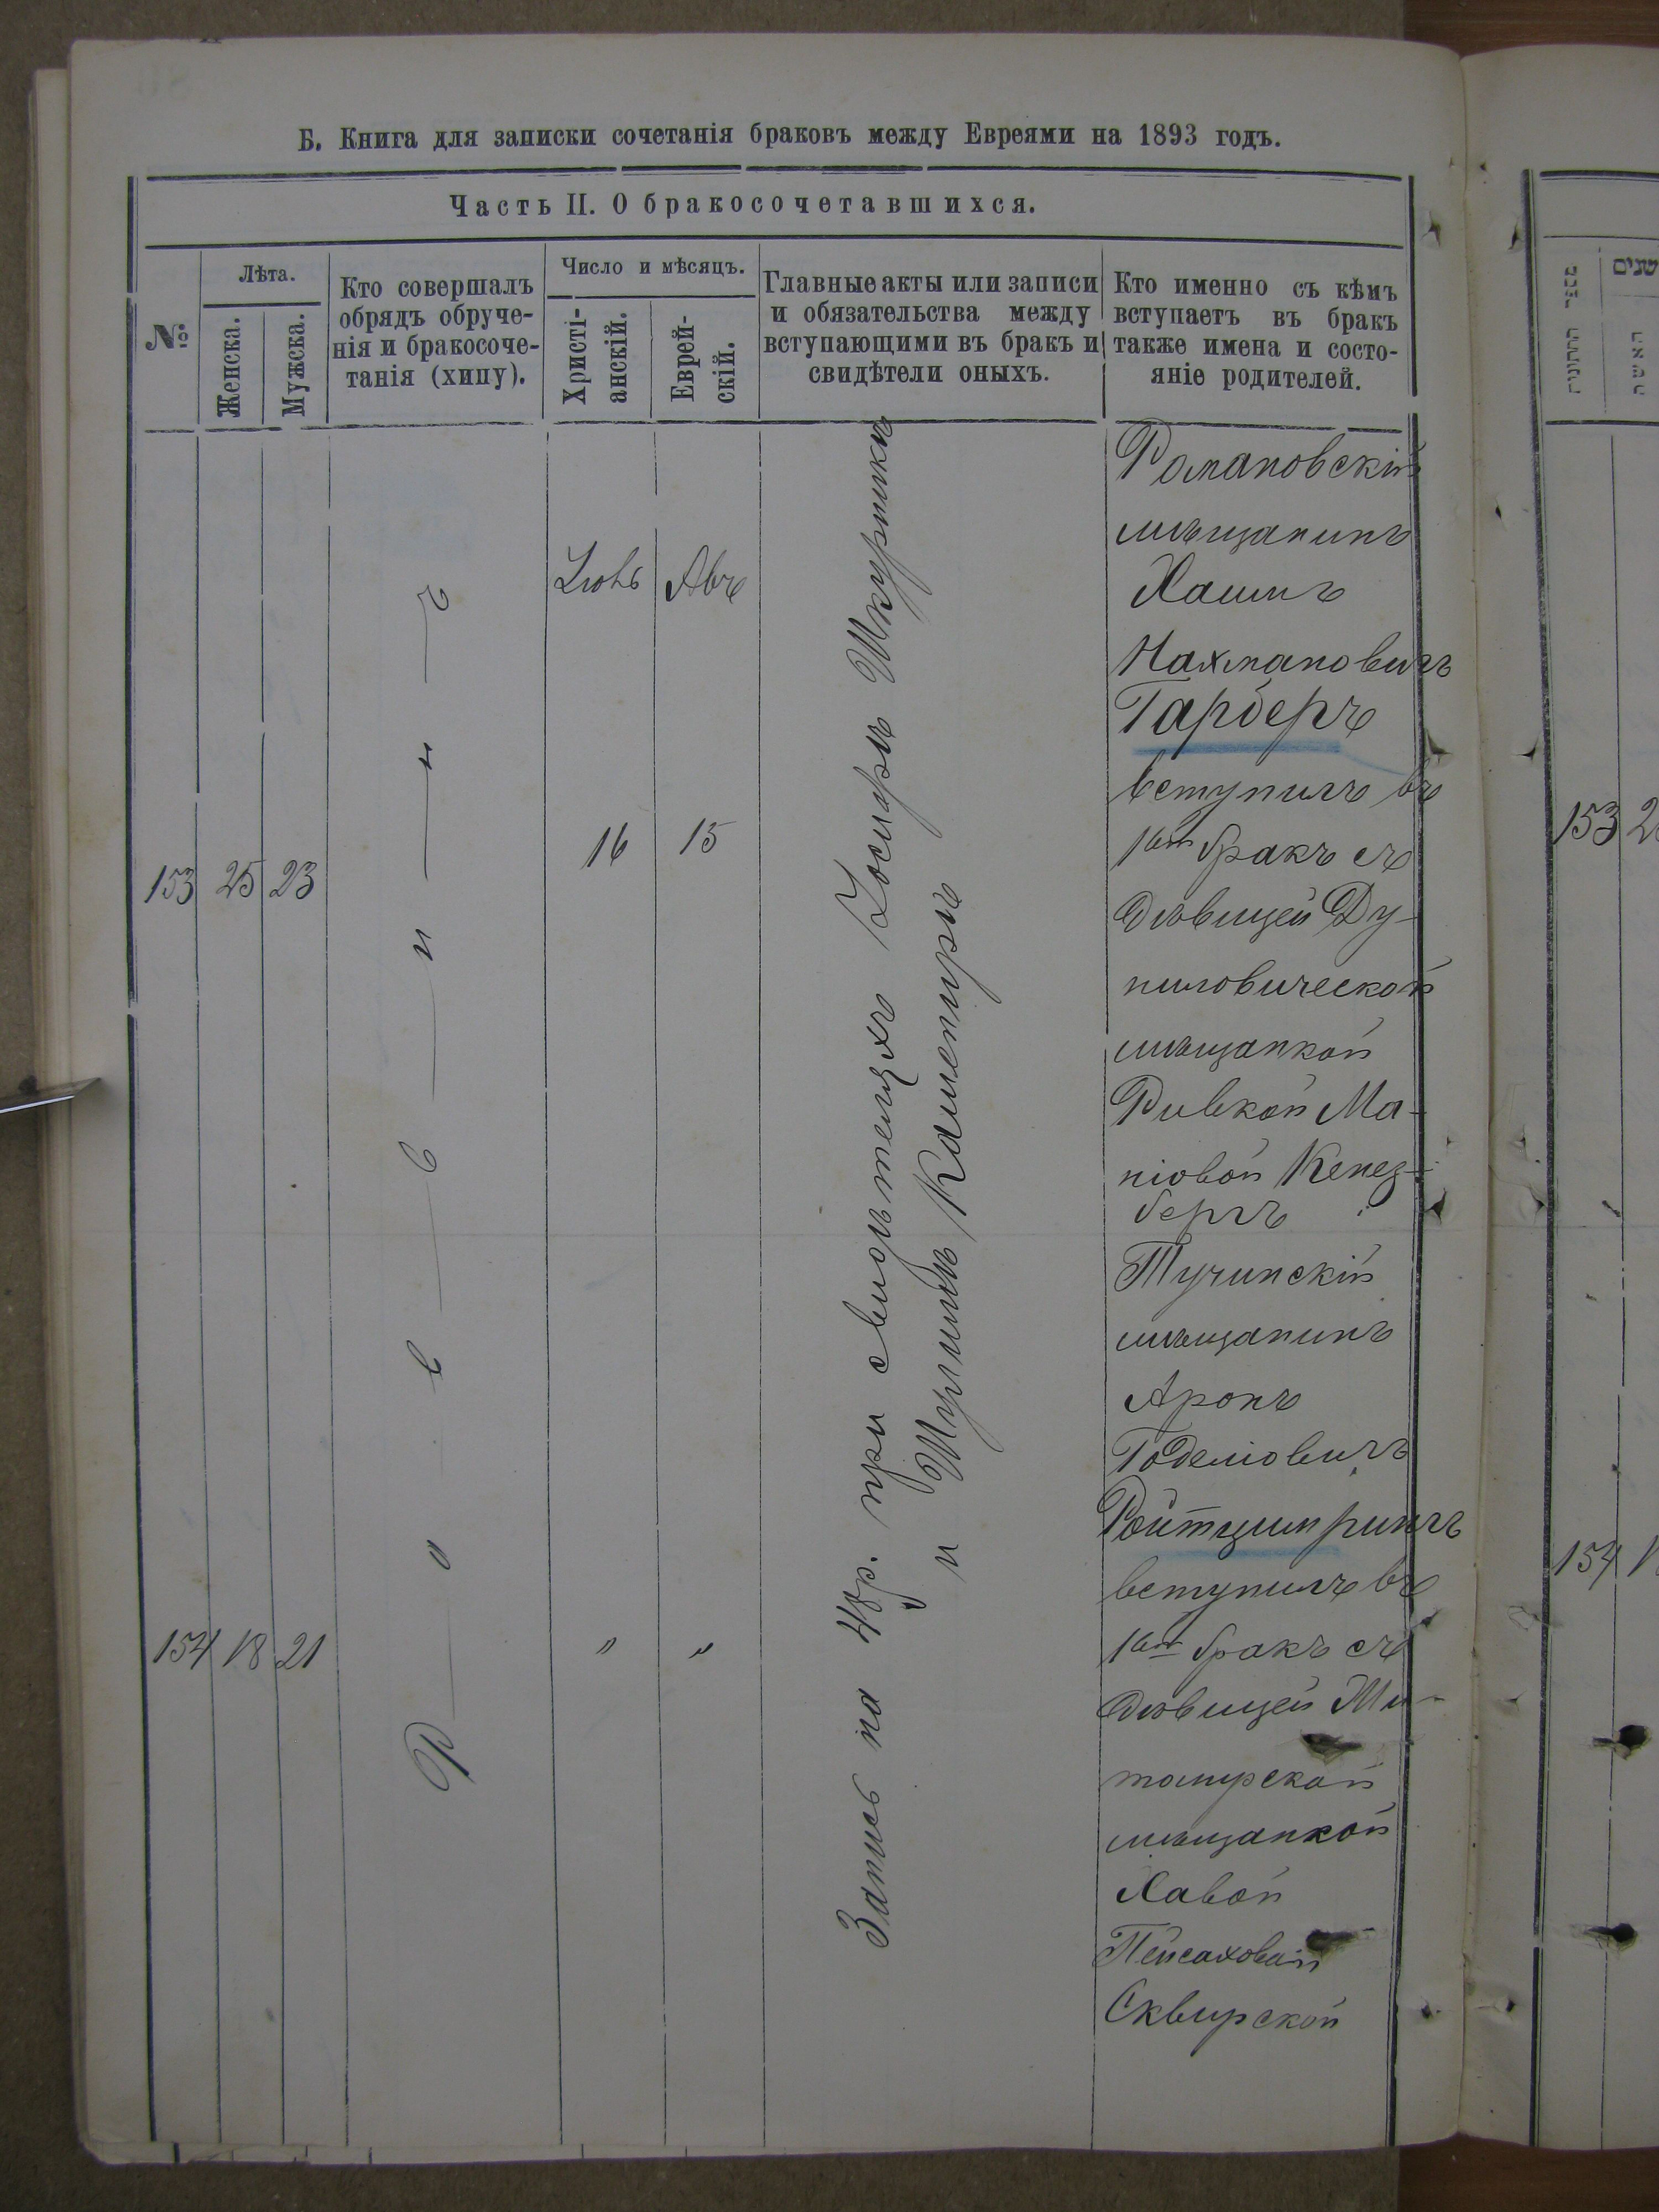 Б. Книга для записки сочетанія браковъ между Евреями на 1893 годъ.
Часть II. О бракосочетавшихся.
№
Лѣта.
Женска.
Мужска.
Кто совершалъ
обрядъ обруче-
нія и бракосоче-
танія (хипу).
Число и мѣсяцъ.
Христі-
анскій.
Еврей-
скій.
Главные акты или записи
и обязательства между
вступающими въ бракъ и
свидѣтели оныхъ.
Кто именно съ кѣмъ
вступаетъ въ бракъ
также имена и состо-
яніе родителей.
153 25 23
Р а в в и н ъ
Іюль Авъ
16 15
Запись на 48р. при свидѣтеляхъ Іосифѣ Шкурникѣ
и Шулимѣ
Романовскій
мѣщанинъ
Хаимъ
Нахмановичъ
Гарберъ
вступилъ въ
1ый бракъ съ
дѣвицей Ду-
ниловической
мѣщанкой
Ривкой Ма-
ніовой Кенез-
бергъ
154 18 21
" "
Тучинскій
мѣщанинъ
Аронъ
Годеліовичъ
Ройтцимрингъ
вступилъ въ
1ый бракъ съ
дѣвицей Жи-
томирской
мѣщанкой
Хавой
Пейсаховой
Сквирской
שנים
האשה
153
154